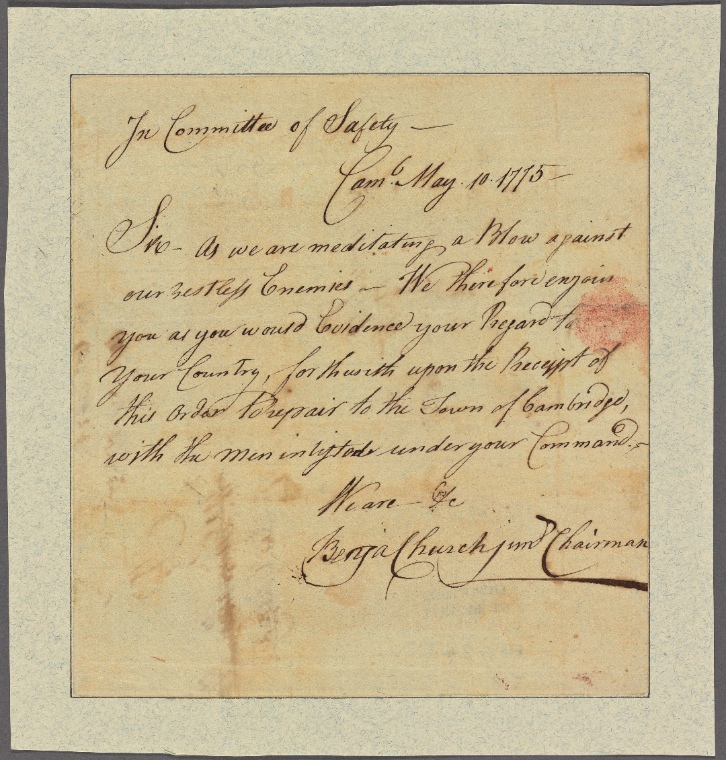 In Committee of Safety —
Camb. May 10. 1775 —
Sir — As we are meditating a Blow against
our restless Enemies — We therefore enjoin
you as you would Evidence your Regard to
your Country, forthwith upon the Receipt of
this Order to repair to the Town of Cambridge,
with the men inlisted under your Command. —
We are — &c
Benja Church junr Chairman